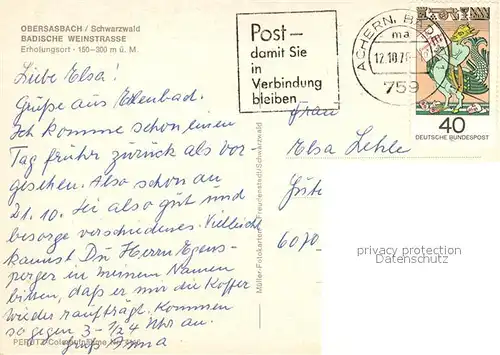 OBERSASBACH / Schwarzwald
BADISCHE WEINSTRASSE
Erholungsort · 150-300 m ü. M.
Liebe Elsa!
Grüße aus Erlenbad.
Ich komme schon einen
Tag früher zurück als vor-
gesehen. Also schon am
21.10. Sei also so gut und
besorge verschiedenes. Vielleicht
kannst Du Herrn Egens-
perger in meinem Namen
bitten, daß er mir die Koffer
wieder raufträgt. Kommen
so gegen 3-1/24 Uhr an.
Gruß Anna
Müller-Fotokarten Freudenstadt/Schwarzwald
Post-
damit Sie
in
Verbindung
bleiben
ACHERN, BADEN
ma
12.10.76
759
40
DEUTSCHE BUNDESPOST
Frau
Elsa Lehle
Güte
6070
privacy protection
Datenschutz